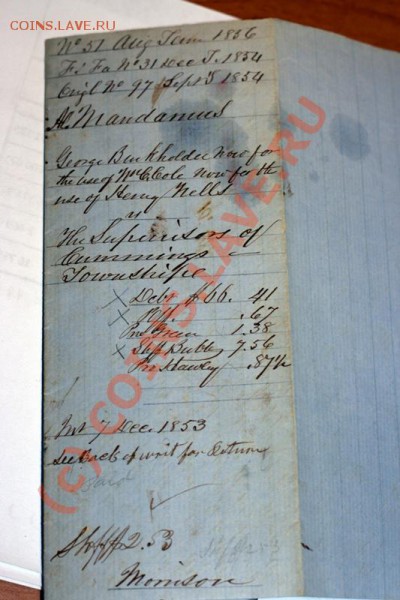 COINS.LAVE.RU
No 51 Aug Term 1856
Fi Fa No 31 Dec T. 1854
Origl No 97 Sept T 1854
Als Mandamus
George Burkholder Now for
the use of Wm Cole Now for the
use of Henry Wells
vs
The Supervisors of
Cummings
Township
Debt $66. 41
.67
Pro Green 1.38
Shff Bubb 7.56
Pro Hawley .87½
Int 7 Dec. 1853
See back of writ for return
Paid
Shff 2.53
Shff 2.53
Morrison
(c) COINS.LAVE.RU